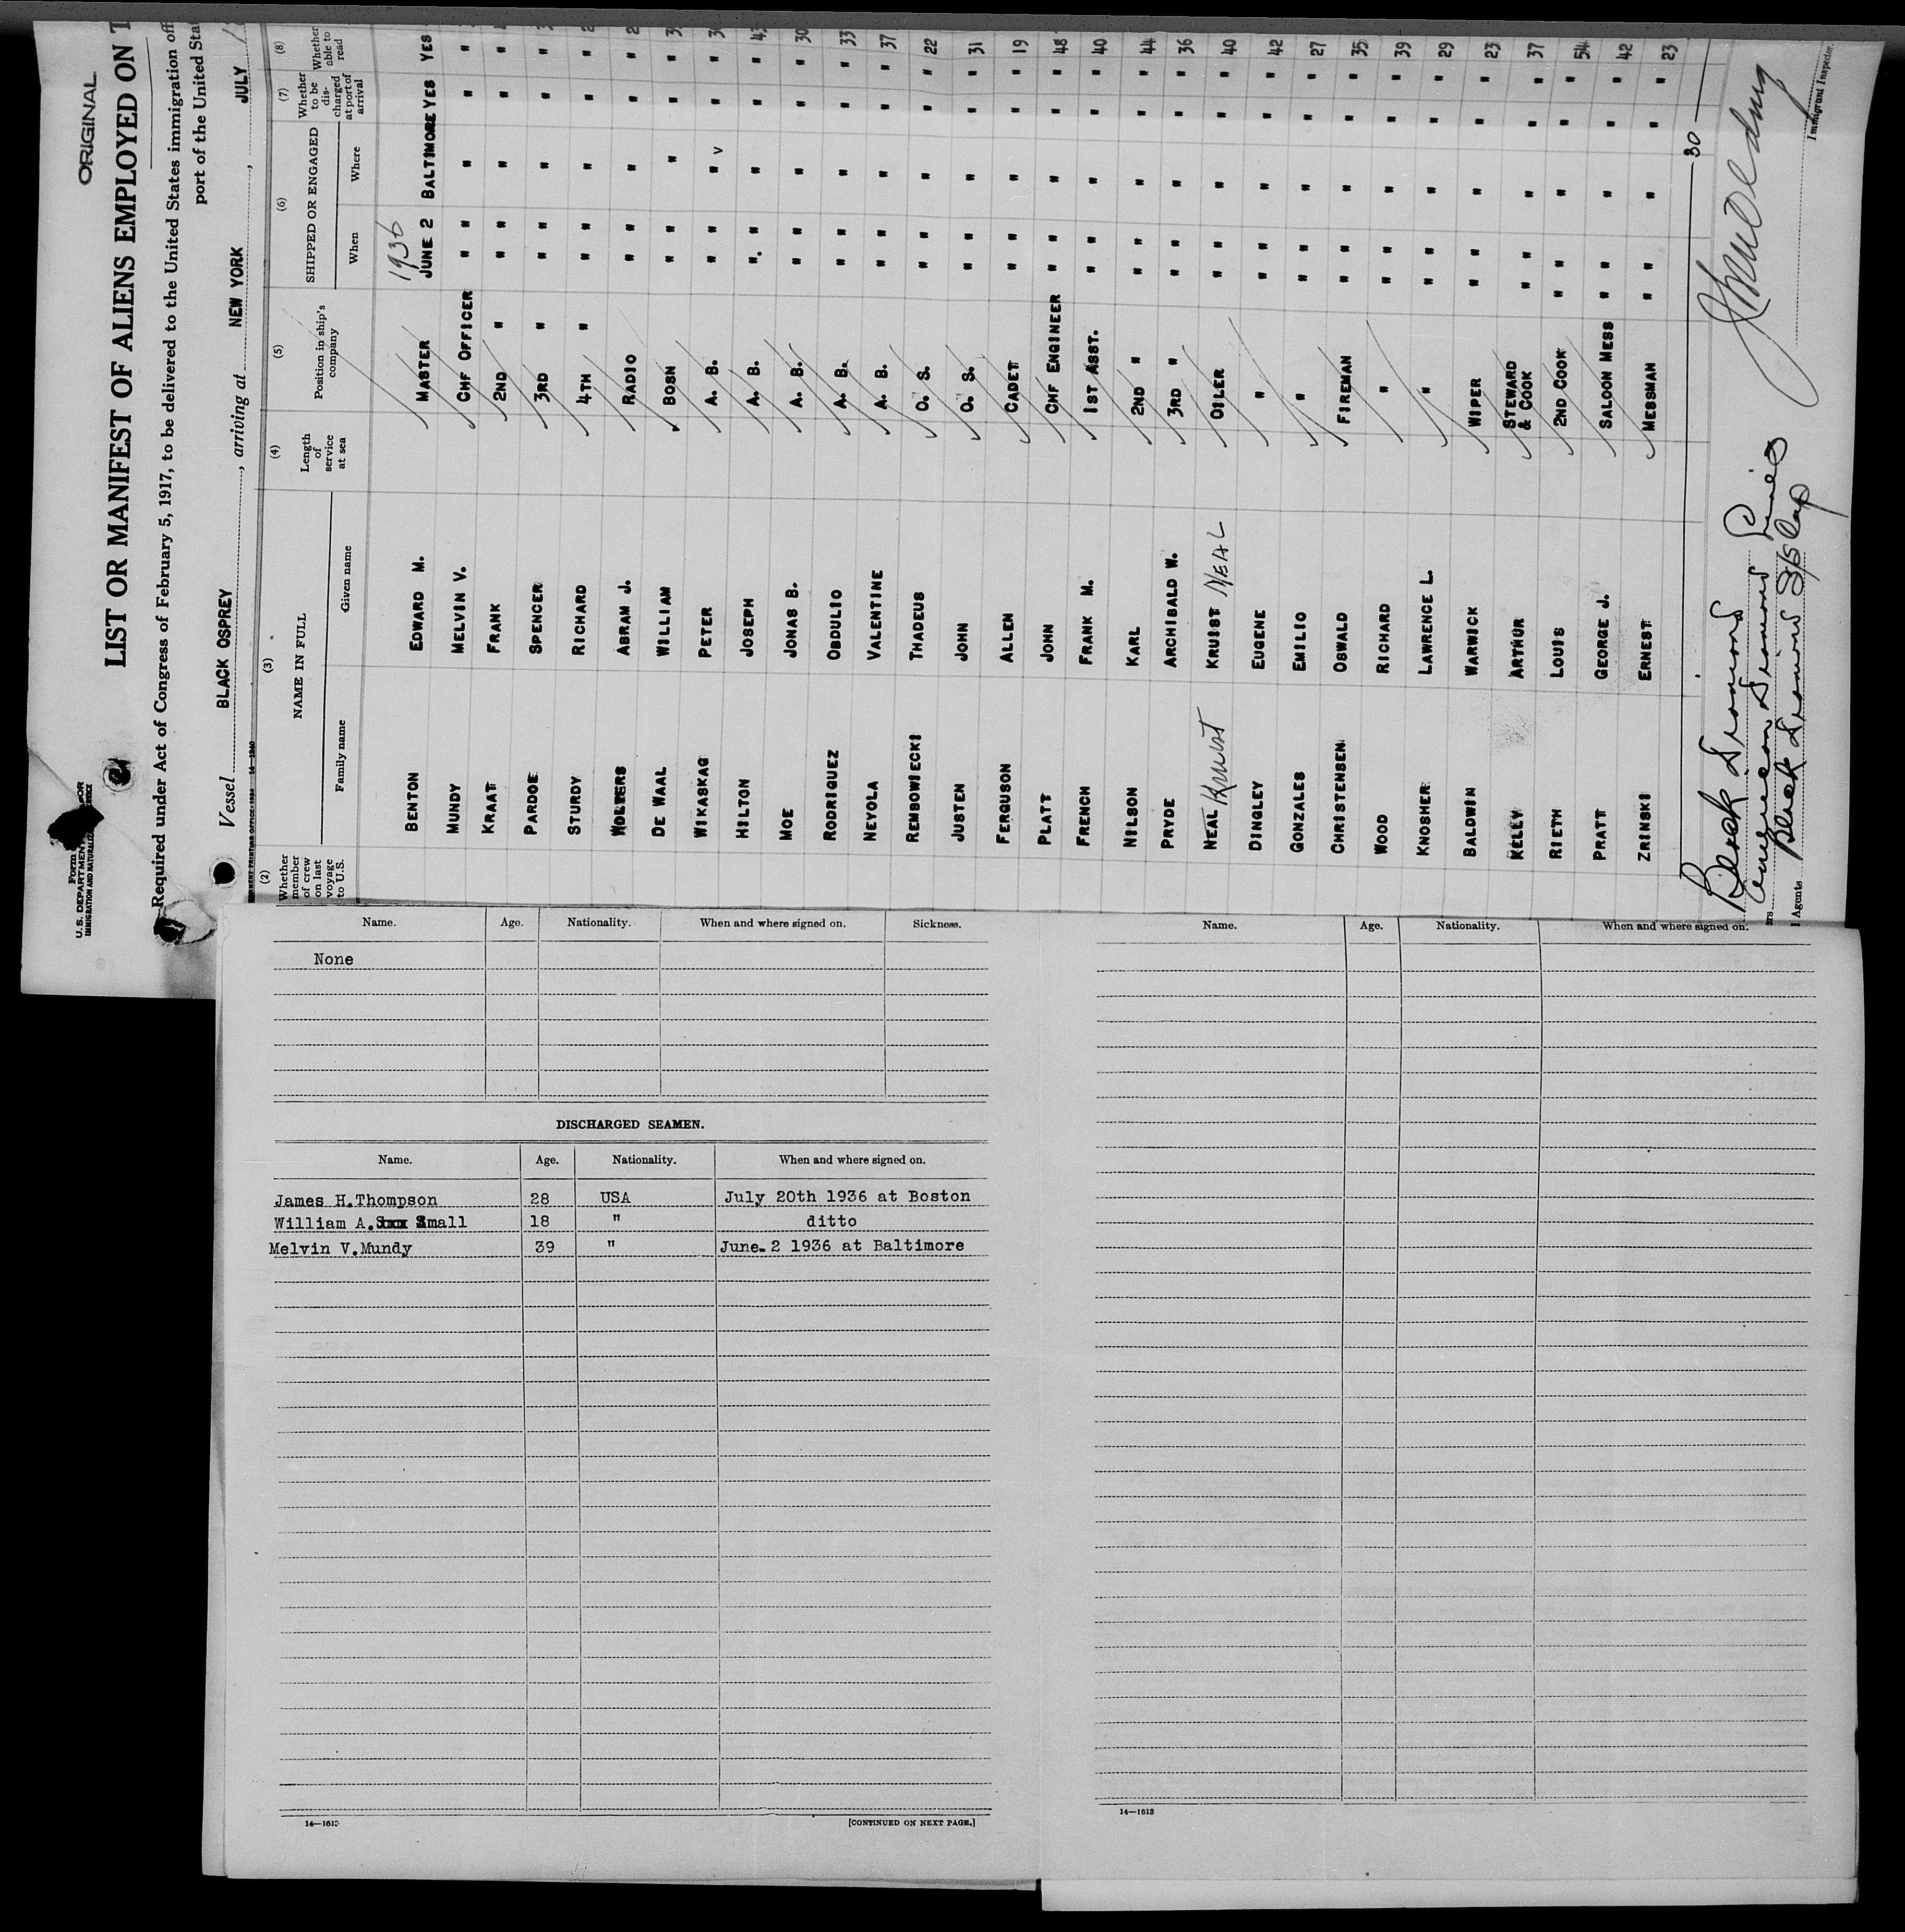 ORIGINAL
U. S. DEPARTMENT
LIST OR MANIFEST OF ALIENS EMPLOYED ON T
Required under Act of Congress of February 5, 1917, to be delivered to the United States immigration off
port of the United Sta
Vessel BLACK OSPREY, arriving at NEW YORK, JULY
(2) (3) (4) (5) (6) (7) (8)
Whether member of crew on last voyage to U.S.
NAME IN FULL
Family name Given name
Length of service at sea
Position in ship's company
SHIPPED OR ENGAGED
When Where
Whether to be discharged at port of arrival
Whether able to read
1936
BENTON EDWARD M. MASTER JUNE 2 BALTIMORE YES YES
MUNDY MELVIN V. CHF OFFICER " " " " "
KRAAT FRANK 2ND " " " " " "
PARDOE SPENCER 3RD " " " " " "
STURDY RICHARD 4TH " " " " " "
WOLTERS ABRAM J. RADIO " " " " "
DE WAAL WILLIAM BOSN " " " " "
WIKASKAG PETER A. B. " " " v " "
HILTON JOSEPH A. B. " " " " "
MOE JONAS B. A. B. " " " " " 30
RODRIGUEZ OBDULIO A. B. " " " " " 33
NEYOLA VALENTINE A. B. " " " " " 37
REMBOWIECKI THADEUS O. S. " " " " " 22
JUSTEN JOHN O. S. " " " " " 31
FERGUSON ALLEN CADET " " " " " 19
PLATT JOHN CHF ENGINEER " " " " " 48
FRENCH FRANK M. 1ST ASST. " " " " " 40
NILSON KARL 2ND " " " " " " 44
PRYDE ARCHIBALD W. 3RD " " " " " " 36
NEAL Kruist KRUIST NEAL OILER " " " " " 40
DINGLEY EUGENE " " " " " " 42
GONZALES EMILIO " " " " " " 27
CHRISTENSEN OSWALD FIREMAN " " " " " 35
WOOD RICHARD " " " " " " 39
KNOSHER LAWRENCE L. " " " " " " 29
BALDWIN WARWICK WIPER " " " " " 23
KELLY ARTHUR STEWARD & COOK " " " " " 37
RIETH LOUIS 2ND COOK " " " " " 54
PRATT GEORGE J. SALOON MESS " " " " " 42
ZRINSKI ERNEST MESSMAN " " " " " 23
30
Black Diamond
American Diamond Lines
Agents Black Diamond SS Corp
Immigrant Inspector.
Name. Age. Nationality. When and where signed on. Sickness.
None
DISCHARGED SEAMEN.
Name. Age. Nationality. When and where signed on.
James H.Thompson 28 USA July 20th 1936 at Boston
William A. Small 18 " ditto
Melvin V.Mundy 39 " June 2 1936 at Baltimore
14—1613
[CONTINUED ON NEXT PAGE.]
Name. Age. Nationality. When and where signed on.
14—1613